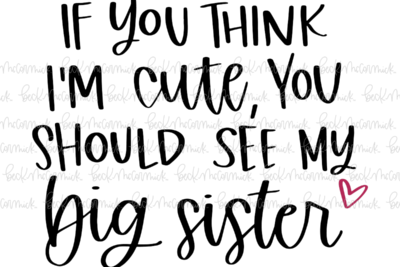 IF YOU THINK
I'M cute, YOU
SHOULD SEE MY
big sister